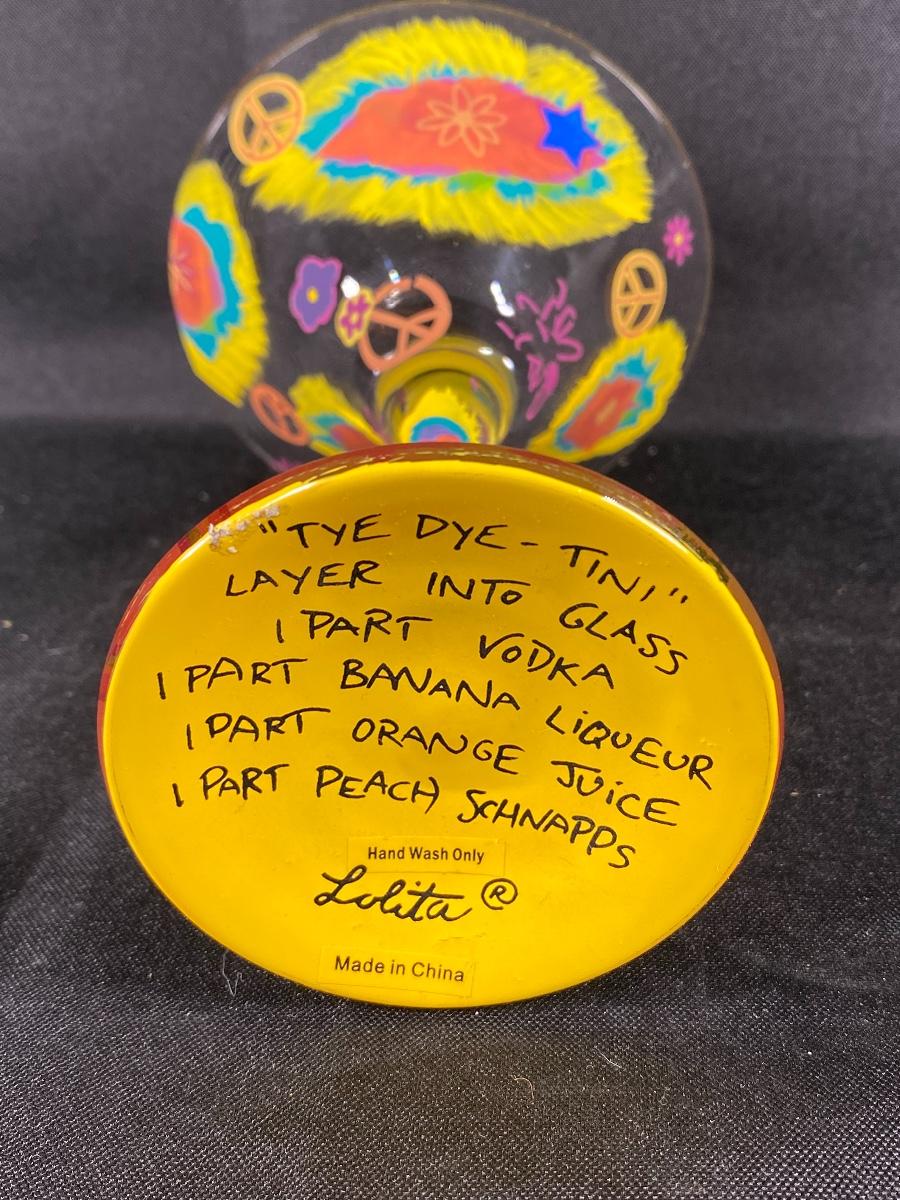 "TYE DYE-TINI"
LAYER INTO GLASS
1 PART VODKA
1 PART BANANA LIQUEUR
1 PART ORANGE JUICE
1 PART PEACH SCHNAPPS
Hand Wash Only
Lolita®
Made in China